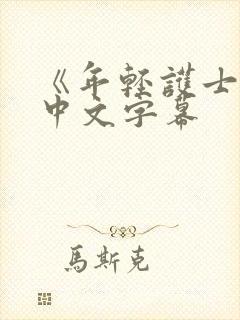 《年轻護士
中文字幕
馬斯克